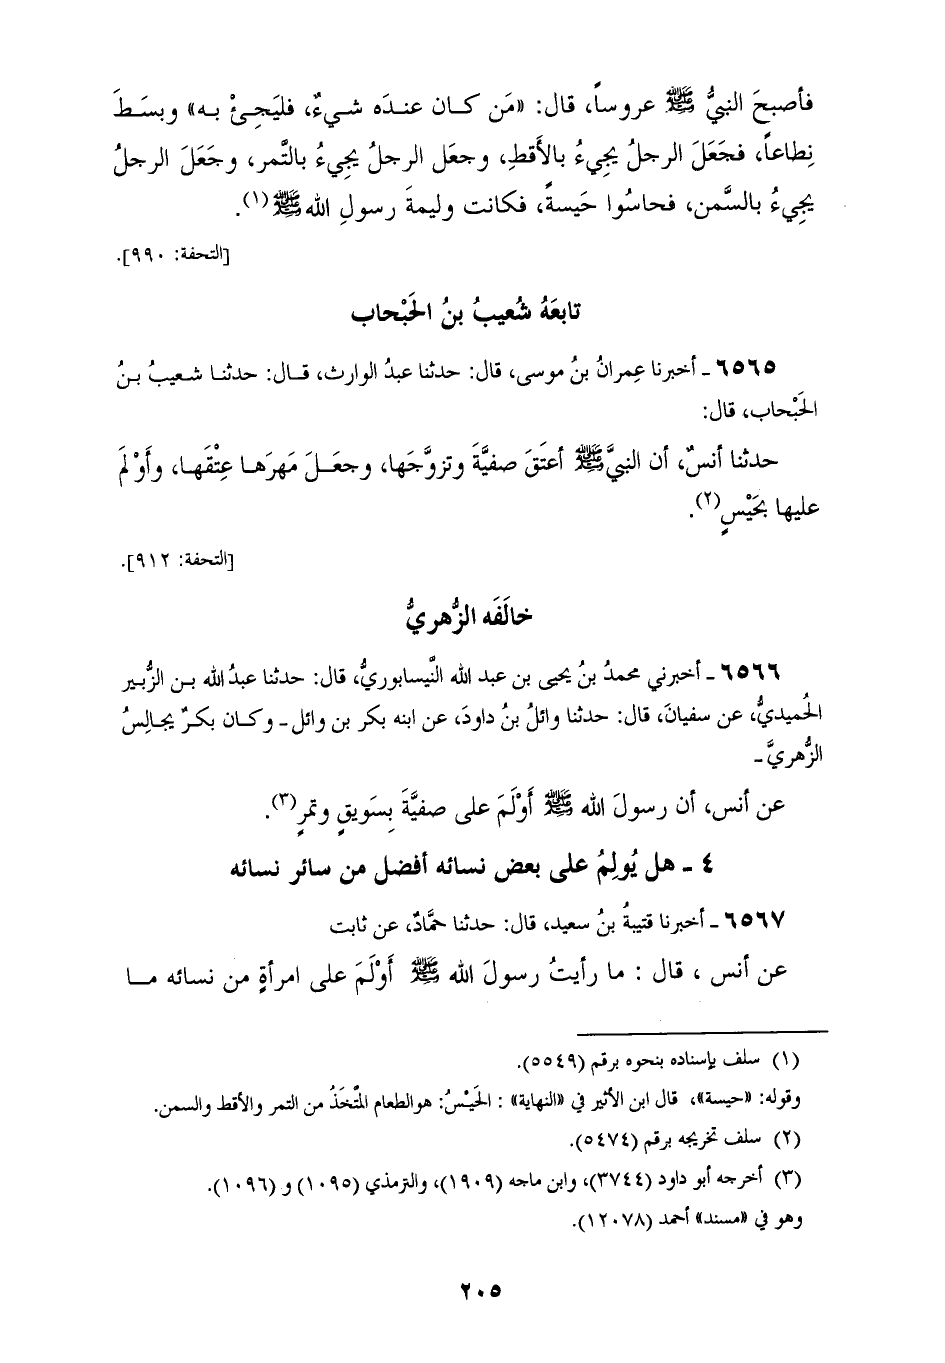 فأصبحَ النبيُّ ﷺ عروساً، قال: «مَن كـان عنـدَه شيءٌ، فليَجِئْ بـه» وبسَـطَ
نِطاعاً، فجَعَلَ الرجلُ يجيءُ بالأَقطِ، وجعَل الرجلُ يجيءُ بالتَّمر، وجَعَلَ الرجلُ
يجيءُ بالسَّمن، فحاسُوا حَيسةً، فكانت وليمةَ رسولِ اللهﷺ(١).
[التحفة: ٩٩٠].
تابعَهُ شُعيبُ بنُ الحَبْحاب
٦٥٦٥ ـ أخبرنا عِمرانُ بنُ موسى، قال: حدثنا عبدُ الوارث، قـال: حدثنـا شـعيبُ بـنُ
الحَبْحاب، قال:
حدثنا أنسٌ، أن النبيَّﷺ أعتَقَ صفيَّةَ وتزوَّجَها، وجعَـلَ مَهرَهـا عِتْقَهـا، وأَوْلَمَ
عليها بحَيْسٍ(٢).
[التحفة: ٩١٢].
خالَفَه الزُّهريُّ
٦٥٦٦ ـ أخبرني محمدُ بنُ يحيى بن عبد الله النَّيسابوريُّ، قال: حدثنا عبدُ الله بـن الزُّبير
الحُميديُّ، عن سفيانَ، قال: حدثنا وائلُ بنُ داودَ، عن ابنه بكر بن وائل ـ وكـان بكـرٌ يجـالِسُ
الزُّهريَّ ـ
عن أنس، أن رسولَ الله ﷺ أَوْلَمَ على صفيَّةَ بِسَويقٍ وتمرٍ(٣).
٤ ـ هل يُولِمُ على بعض نسائه أفضل من سائر نسائه
٦٥٦٧ ـ أخبرنا قتيبةُ بنُ سعيد، قال: حدثنا حمَّادٌ، عن ثابت
عن أنس ، قال : ما رأيتُ رسولَ الله ﷺ أَوْلَمَ على امرأةٍ من نسائه مـا
(١) سلف بإسناده بنحوه برقم (٥٥٤٩).
وقوله: «حيسة»، قال ابن الأثير في «النهاية» : الحَيْسُ: هوالطعام المتَّخَذُ من التمر والأقط والسمن.
(٢) سلف تخريجه برقم (٥٤٧٤).
(٣) أخرجه أبو داود (٣٧٤٤)، وابن ماجه (١٩٠٩)، والترمذي (١٠٩٥) و (١٠٩٦).
وهو في «مسند» أحمد (١٢٠٧٨).
٢٠٥